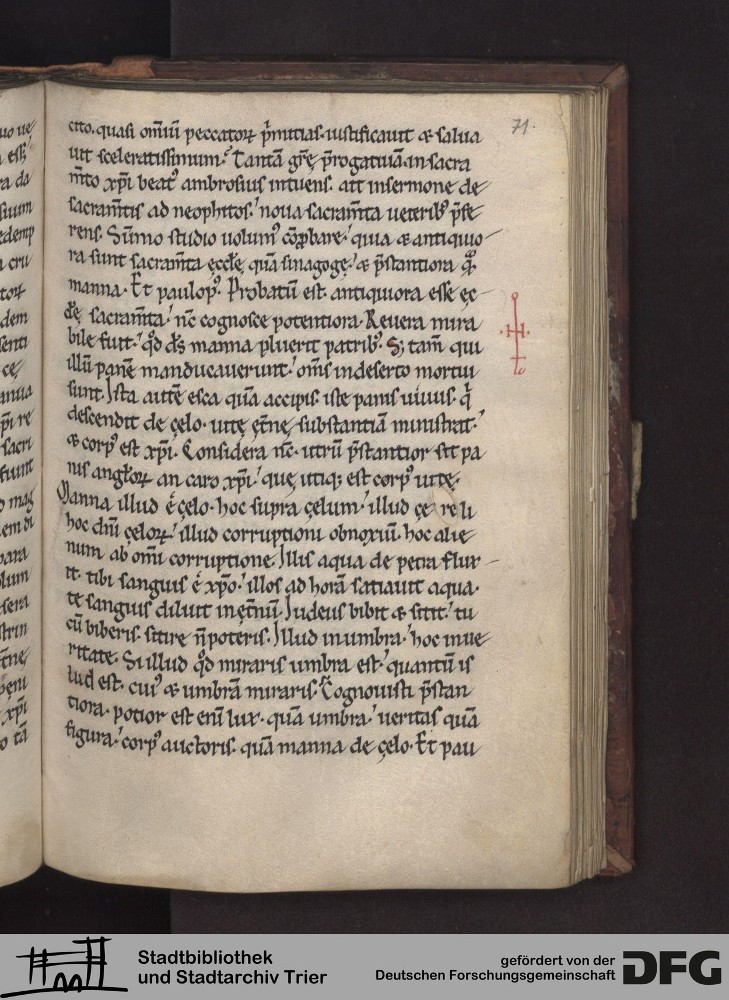 71.
cito. quasi om̅iu̅ peccatoꝝ p̅mitias. iustificauit & salua
uit sceleratissimum. Tanta̅ gr̅ę p̅rogatiua̅. in sacra
m̅to xp̅i beat᾽ ambrosius intuens. ait in sermone de
sacram̅tis ad neophitos. noua sacram̅ta ueterib᾽ p̅fe
rens. Su̅mo studio uolum᾽ co̅ꝓbare. quia & antiquio
ra sunt sacram̅ta ęccl̅ę, qua̅ sinagogę. & p̅stantiora qͣ̅
manna. Et paulop᾽. Probatu̅ est. antiquiora esse ęc
cl̅ę sacram̅ta. nc̅ cognosce potentiora. Reuera mira
bile fuit. qd̅ ds̅ manna pluerit patrib᾽. S; tam̅ qui
illu̅ pane̅ manducauerunt. om̅s in deserto mortui
sunt. Ista aute̅ esca qua̅ accipis. iste panis uiuus. q̅
descendit de cęlo. uitę ęt̅nę, substantia̅ ministrat.
& corp᾽ est xp̅i. Considera nc̅. utru̅ p̅stantior sit pa
nis angl̅oꝝ an caro xp̅i. quę utiq; est corp᾽ uitę.
Manna illud e̅ cęlo. hoc supra cęlum. illud cę reli
hoc dn̅i cęloꝝ. illud corruptioni obnoxiu̅. hoc alie
num ab om̅i corruptione. Illis aqua de petra flux
it. tibi sanguis e̅ xp̅o. illos ad hora̅ satiauit aqua.
te sanguis diluit in ęt̅nu̅. Iudeus bibit & sitit. tu
cu̅ biberis. sitire n̅ poteris. Illud in umbra. hoc in ue
ritate. Si illud qd̅ miraris umbra est. quantu̅ is
lud est. cui᾽ & umbra̅ miraris. Cognouisti p̅stan
tiora. potior est eni̅ lux. qua̅ umbra. ueritas qua̅
figura. corp᾽ auctoris. qua̅ manna de cęlo. Et pau
Stadtbibliothek
und Stadtarchiv Trier
gefördert von der
Deutschen Forschungsgemeinschaft
DFG